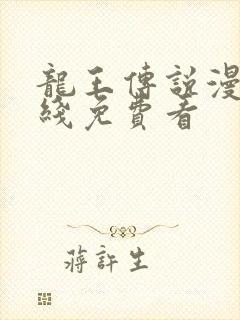 龍王傳說漫
綫免費看
蔣許生